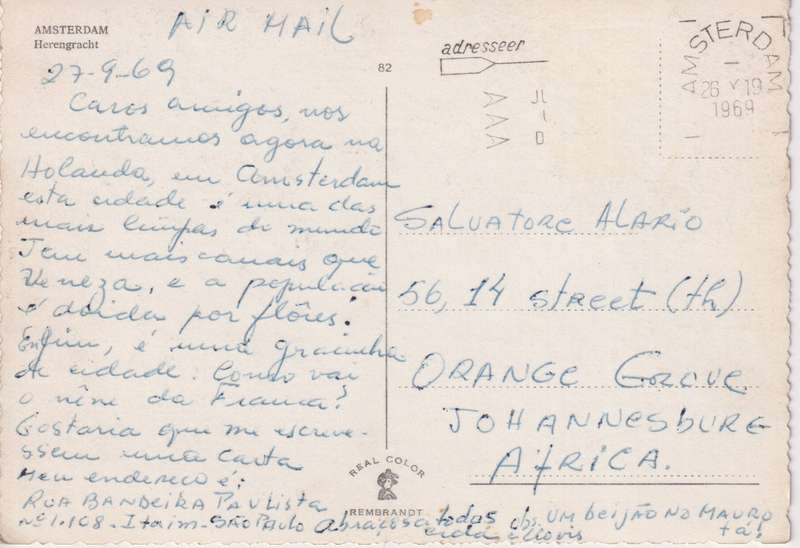 AMSTERDAM
Herengracht
AIR MAIL
27-9-69
Caros amigos, nos
encontramos agora na
Holanda, em Amsterdam
esta cidade é uma das
mais limpas do mundo
Tem mais canais que
Veneza, e a população
é doida por flôres.
Enfim, é uma gracinha
de cidade. Como vai
o nêne da Franca?
Gostaria que me escreve-
ssem uma carta
Meu endereço é:
RUA BANDEIRA PAULISTA
nº 1.168 - Itaim - SÃO PAULO
Abraços a todos
cida
obs UM beijão NO MAURO
tá!
82
adresseer
AMSTERDAM
26 V 19
1969
SALVATORE ALARIO
56, 14 street (th)
ORANGE Grove
JOHANNESBURG
AfRICA.
REAL COLOR
REMBRANDT